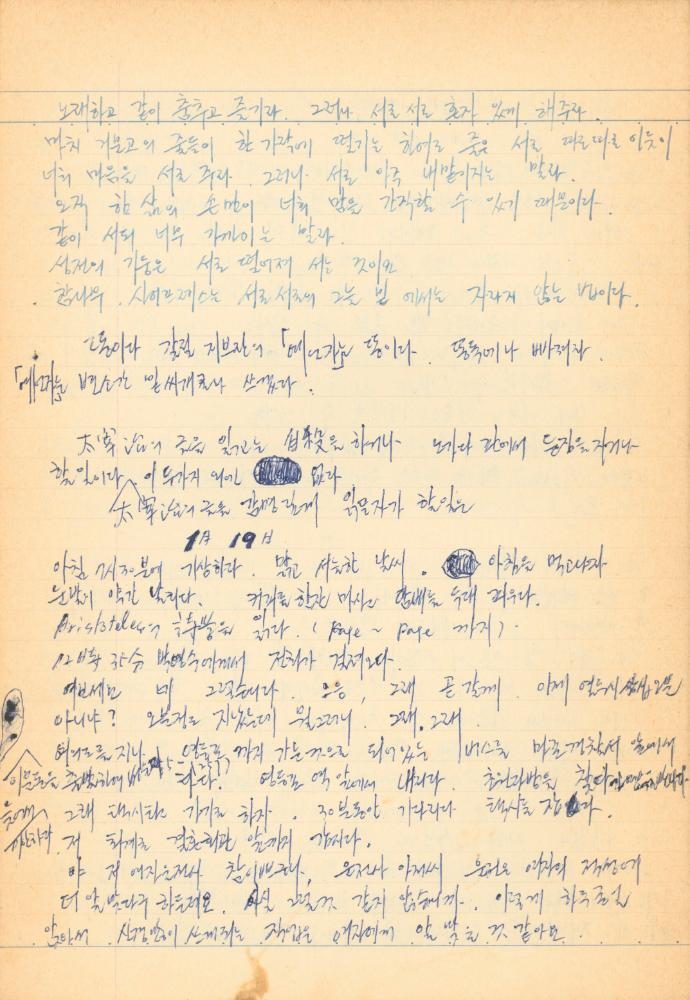 노래하고 같이 춤추고 즐기라. 그러나 서로 서로 혼자 있게 해주라.
마치 거문고의 줄들이 한 가락에 떨기는 할어도 줄은 서로 따로따로 이듯이
너희 마음을 서로 주라. 그러나 서로 아주 내맡기지는 말라.
오직 한 삶의 손만이 너희 맘을 간직할 수 있기 때문이다.
같이 서되 너무 가까이는 말라.
성전의 기둥은 서로 떨어져 서는 것이요
참나무, 사이프레스는 서로서로의 그늘 밑에서는 자라지 않는 법이다.
똥이다 갈릴 지브란의 「예언자」는 똥이다. 똥통에나 빠져라.
「예언자」는 변소간 밑싸개로나 쓰겠다.
太宰治의 글을 읽고는 自殺을 하거나 노가다 판에서 등짐을 지거나
할 일이다. 이 두가지 외엔 없다
太宰治의 글을 감명 깊게 읽은 자가 할 일은
1月 19日
아침 7시 30분에 기상하다. 맑고 서늘한 날씨. 아침을 먹고나자
눈발이 약간 날리다. 커피를 한잔 마시고 담배를 두대 피우다.
Aristoteles의 詩學을 읽다. (page ~ page 까지).
12時 35分 에게서 전화가 걸려오다.
여보세요 네 그렇습니다. 으응, 그래 곧 갈께. 이제 열두시 삼십오분
아니냐? 오분정도 지났는데 뭘 그러니. 그래. 그래.
여의도를 지나 영등포 까지 가는 것으로 되어있는 버스를 마포경찰서 앞에서
타다. 영등포 역 앞에서 내리다. 초원다방을 찾다
그래 택시타고 가기로 하자. 30분동안 기다리다 택시를 잡다.
저 회관 앞까지 갑시다.
야 저 여자운전사 참 이쁘다, 운전사 아저씨 운전은 여자의 적성에
더 알맞다구 하는데요. 사실 그럴것 같지 않습니까. 이렇게 하루종일
앉아서 신경많이 쓰게되는 직업은 여자에게 알맞을 것 같아요.